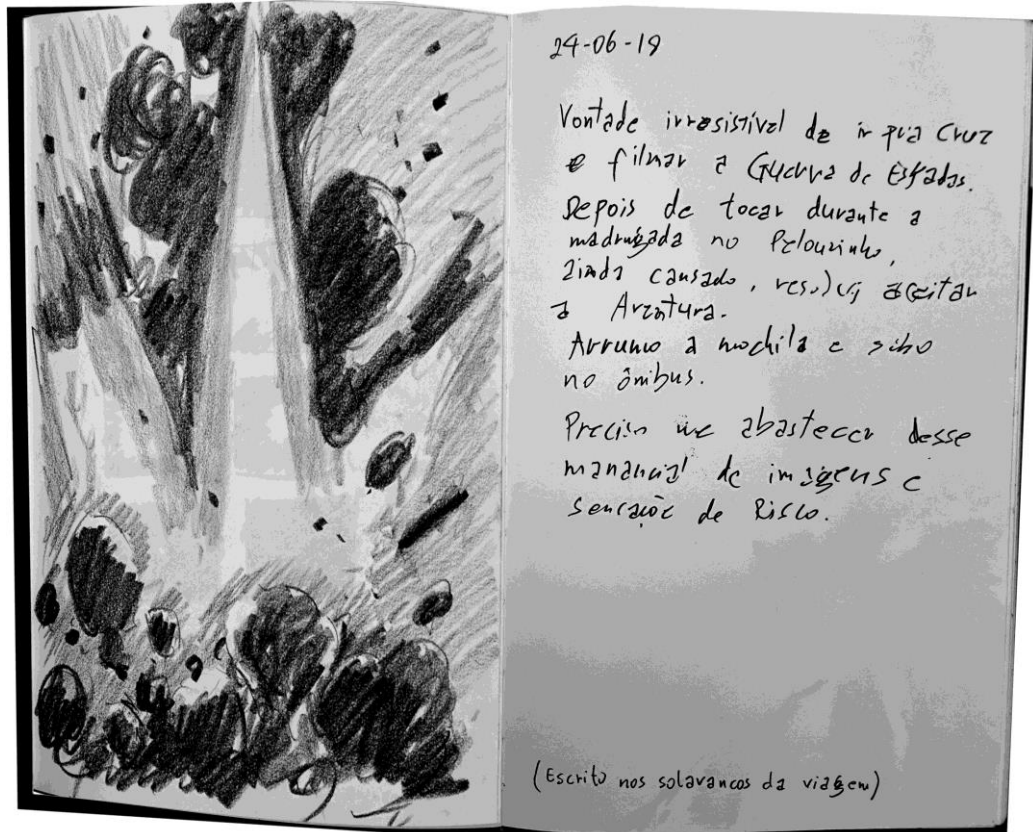 24-06-19
Vontade irresistível de ir pra Cruz
e filmar a Guerra de Espadas.
Depois de tocar durante a
madrugada no Pelourinho,
ainda cansado, resolvi aceitar
a Aventura.
Arrumo a mochila e subo
no ônibus.
Preciso me abastecer desse
manancial de imagens e
sensação de Risco.
(Escrito nos solavancos da viagem)